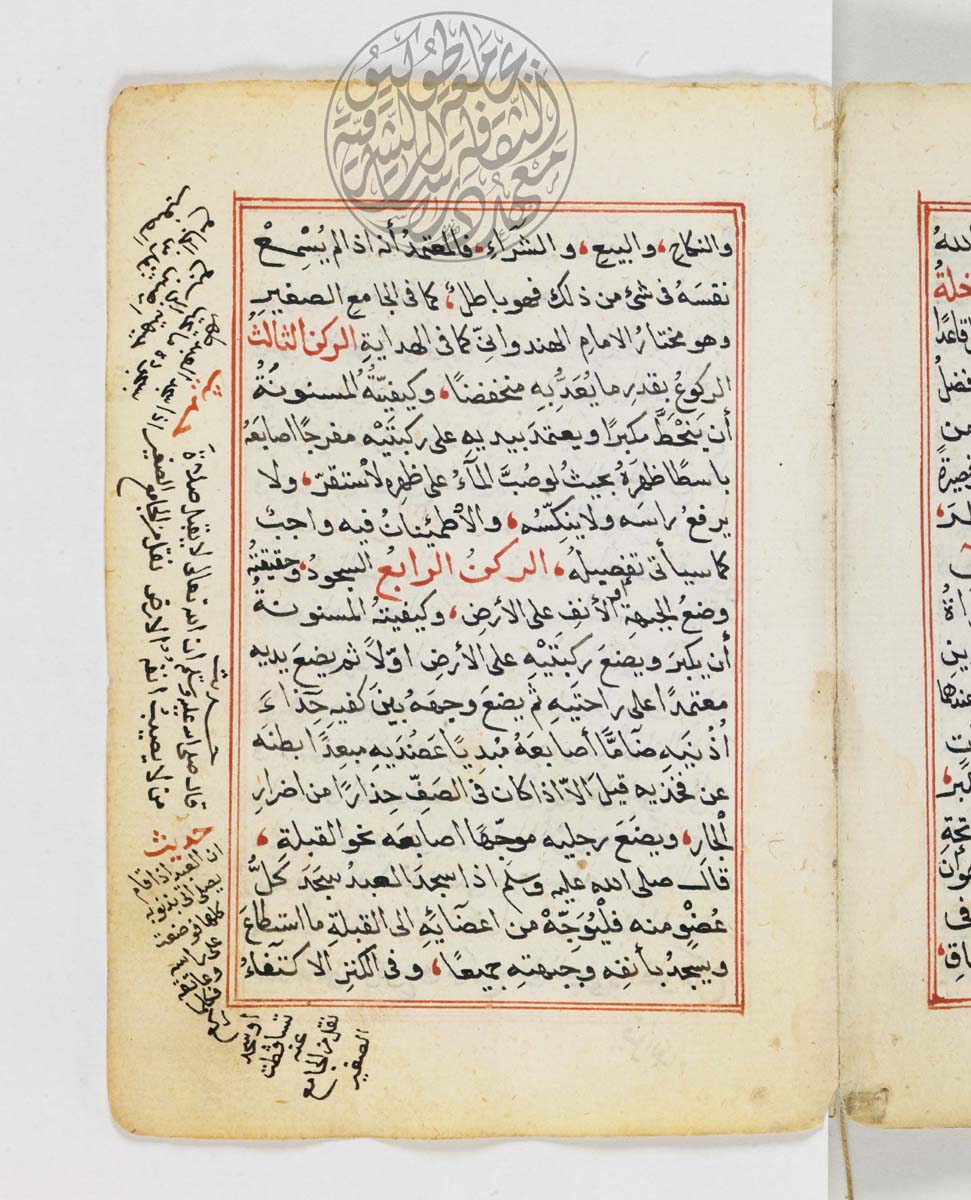 والنكاح، والبيع، والشراء، فالمعتمدُ أنه اذا لم يُسْمِعْ
نفسَهُ فى شئ من ذلك فهو باطلٌ، كما فى الجامع الصغيرِ
وهو مختارُ الامامِ الهندوانىّ كما فى الهدايةِ الركن الثالث
الركوعُ بقدرِ ما يُعَدُّ بهِ منخفضًا، وكيفيّتُهُ المسنونةُ
أن يَنْحَطَّ مكبرًا ويعتمدَ بيديهِ على ركبتَيْهِ مفرجًا اصابعَهُ
باسطًا ظهرَهُ بحيثُ لو صُبَّ المآءُ على ظهرِهِ لاستقرّ، ولا
يرفعُ راسَه ولا ينكِّسُه، والاطمئنانُ فيه واجبٌ
كما سيأتى تفصيلُه، الركنُ الرابع السجودُ، وحقيقتُهُ
وضعُ الجبهةِ او الأنفِ على الأرضِ، وكيفيتهُ المسنونةُ
أن يكبرَ ويضعَ ركبتَيْهِ على الأرضِ اوّلاً ثم يضعَ يديه
معتمدًا على راحتيهِ ثُم يضعَ وجهَهُ بينَ كفيهِ حِذاءَ
اُذُنيهِ ضآمًّا أصابعَهُ مُبديًا عَضُدَيهِ مبعِدًا بطنه
عن فخذيه قيلَ الاّ اذا كان فى الصَفّ حِذارًا من اضرارِ
الجارِ، ويضعَ رجليه موجّهًا اصابعَه نحو القبلةِ،
قال صلى الله عليه وسلم اذا سجدَ العبدُ سجدَ كلُّ
عُضوٍ منه فليُوَجّهْ من اعضآئِهِ الى القبلةِ ما استطاعَ
ويسجدُ بأنفِه وجبهتِهِ جميعًا، وفى الكنزِ الاكتفاءُ
حديث
قال صلى الله عليه وسلم ان الله تعالى لا يقبل صلاة
من لا يصيب انفه الارض نقل من الجامع الصغير
حديث
ان العبد اذا قام
أو سجد
تساقطت
عنه
نقل من الجامع
الصغير